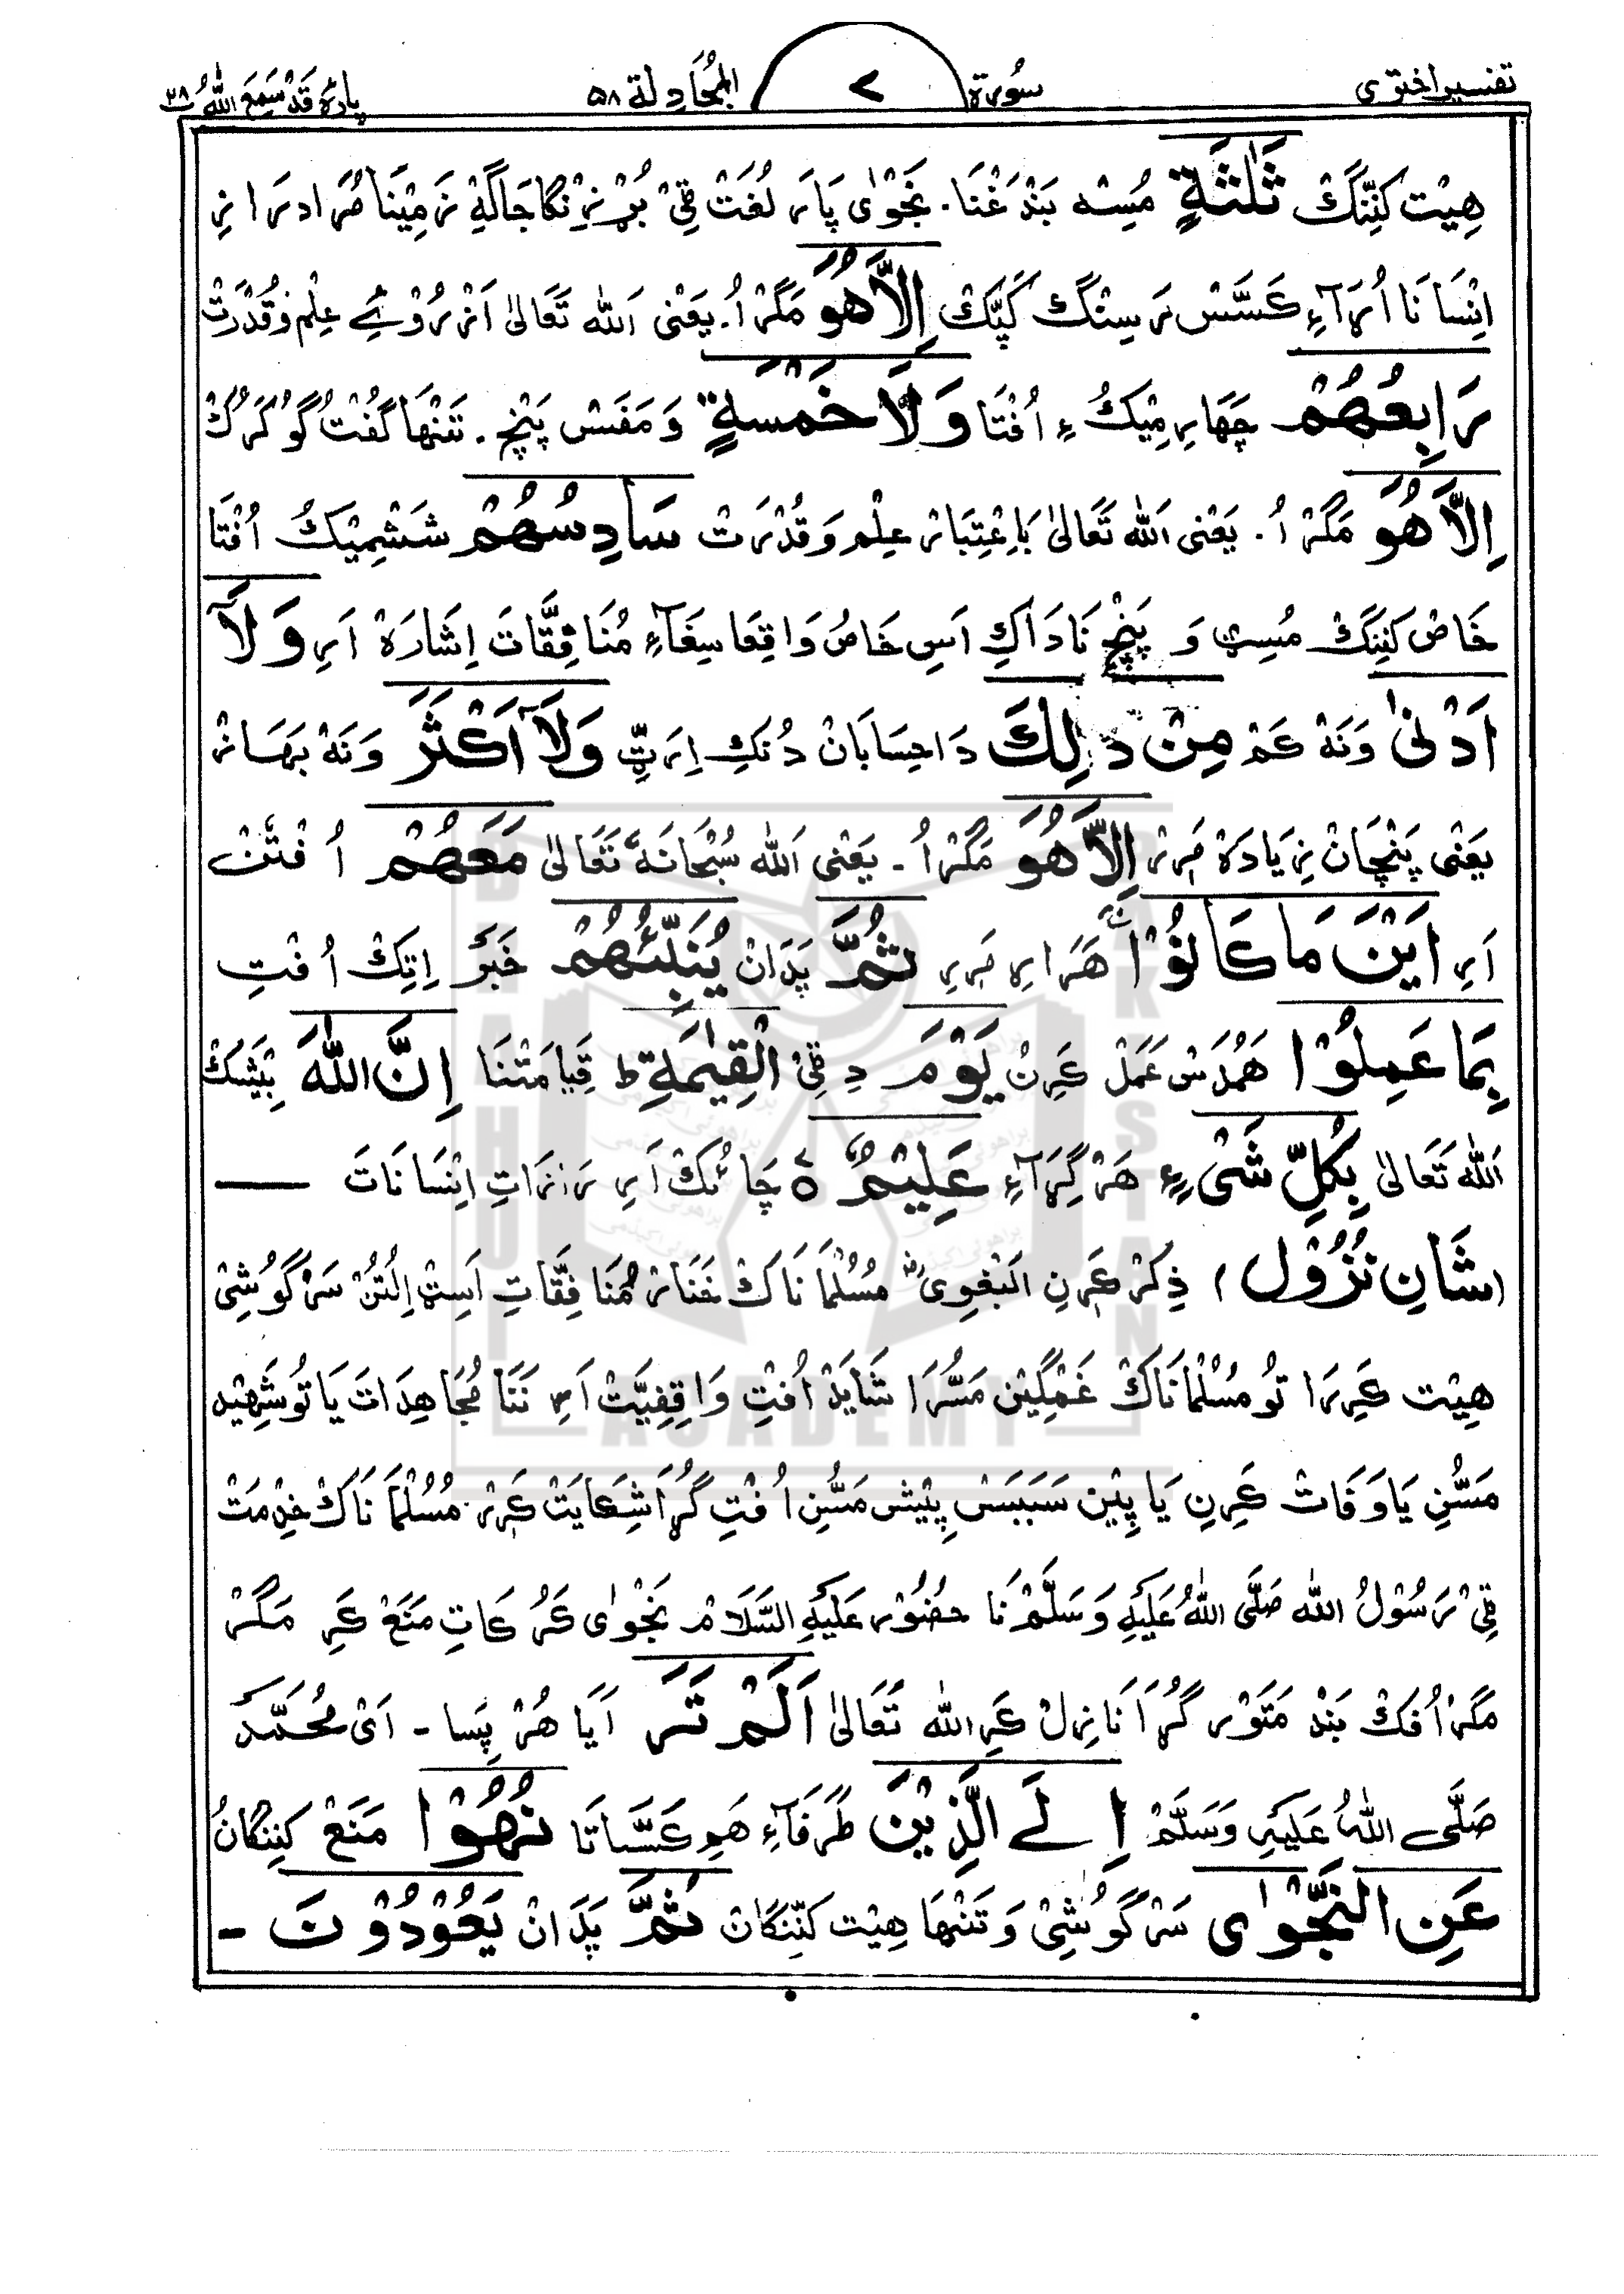 تفسیر اختری سُورة ۷ المجادلة ۵۸ پارَہ قَدْ سَمِعَ اللهُ ۲۸
هِیْت کَنِّنگْ ثَلٰثَةٍ مُسِٹہ بَنْدَغْنَا۔ نَجْوٰی پَارَہ لُغَتْ ٹِیْ بُرْزنگَا جَاگَہِ زَمِیْنَا مُرَاد رَازِ
اِنْسَانَا اُرَآءِ کَسَّسْ رَسِنْگ کَپَّکْ اِلَّا هُوَ مَگَرْ اُ۔ یَعْنٰی اَللّٰہ تَعَالٰی اَزْ رُوْئے عِلْم وَقُدْرَتْ
رَابِعُهُمْ چَهَارمِیْکُ ءِ اُفْتَا وَلَا خَمْسَةٍ وَ مَفَسْ پَنْچ۔ تَنْهَا گُفْتُگُو کَرُکْ
اِلَّا هُوَ مَگَرْ اُ۔ یَعْنٰی اَللّٰہ تَعَالٰی بَاِعْتِبَارْ عِلْم وَ قُدْرَتْ سَادِسُهُمْ شَشْمِیْکُ اُفْتَا
خَاصْ کَنِنگْ مُسِٹ وَ پَنْچ نَا دَاکِ اَسِ خَاصُ وَاقِعَا سِغَآءِ مُنَافِقَّاتَ اِشَارَہْ اَرِ وَلَآ
اَدْنٰی وَنَہْ کَمْ مِنْ ذٰلِكَ دَا حِسَابَانْ دُنکِ اِرَٹِّ وَلَآ اَكْثَرَ وَنَہْ بَهَازْ
یَعْنٰی پَنْچَانْ زِیَادَہْ مَرِرْ اِلَّا هُوَ مَگَرْ اُ۔ یَعْنٰی اَللّٰہ سُبْحَانَہٗ تَعَالٰی مَعَهُمْ اُفْتَتْ
اَرِ اَيْنَ مَا كَانُوْا هَرَارِ مَرِرِ ثُمَّ پَدَانْ يُنَبِّئُهُمْ خَبَرْ اِتِکْ اُفْتِ
بِمَا عَمِلُوْا هَمُدَسْ عَمَلْ کَرِنْ يَوْمَ دِ ٹِیْ الْقِيٰمَةِ ط قِیَامَتْنَا اِنَّ اللّٰهَ بِیْشَکْ
اَللّٰہ تَعَالٰی بِكُلِّ شَیْءٍ هَرْ گِرَآءِ عَلِيْمٌ ہ چَائُکْ اَرِ رَازَاتِ اِنْسَانَاتَ —
(شَانِ نُزُوْل) ذِکْرْ کَرِنِ اَلْبَغَوِیْ مُسُلْمَانَاکْ خَنَارْ مُنَافِقَّاتِ اَسِٹ اِلَتُنْ سَرْگُوشِیْ
هِیْت کَرِرَا تُو مُسُلْمَانَاکْ غَمْگِیْن مَسُّرَا شَایَدْ اُفْتِ وَاقِفِیَّتْ اَرِ نَنَا مُجَاهِدَاتَ یَا تُو شَهِیْد
مَسُّنِ یَا وَفَاتْ کَرِنِ یَا پِیْن سَبَبَسْ پِیْش مَسُّنِ اُفْتِ گُڑَا شِکَایَتْ کَرِرْ۔ مُسُلْمَانَاکْ خِدْمَتْ
ٹِیْ رَسُوْلُ اللّٰہ صَلَّی اللّٰہُ عَلَیْہِ وَسَلَّمْ نَا حضُوْر عَلَیْہِ السَّلَامْ نَجْوٰی کَرُکَاتِ مَنَعْ کَرِ مَگَرْ
مَگَرْ اُفَکْ بَنْد مَتَوْر گُڑَا نَازِلْ کَرِ اللّٰہ تَعَالٰی اَلَمْ تَرَ آیَا هُرْپَسَا۔ اَیْ مُحَمَّد
صَلَّی اللّٰہُ عَلَیْہِ وَسَلَّمْ اِلَی الَّذِيْنَ طَرَفَآءِ هَمِ کَسَّاتَا نُهُوْا مَنَعْ کَنِنگَانْ
عَنِ النَّجْوٰی سَرْگُوشِیْ وَ تَنْهَا هِیْت کَنِّنگَانْ ثُمَّ پَدَانْ يَعُوْدُوْنَ -
BRAHUI ACADEMY PAKISTAN